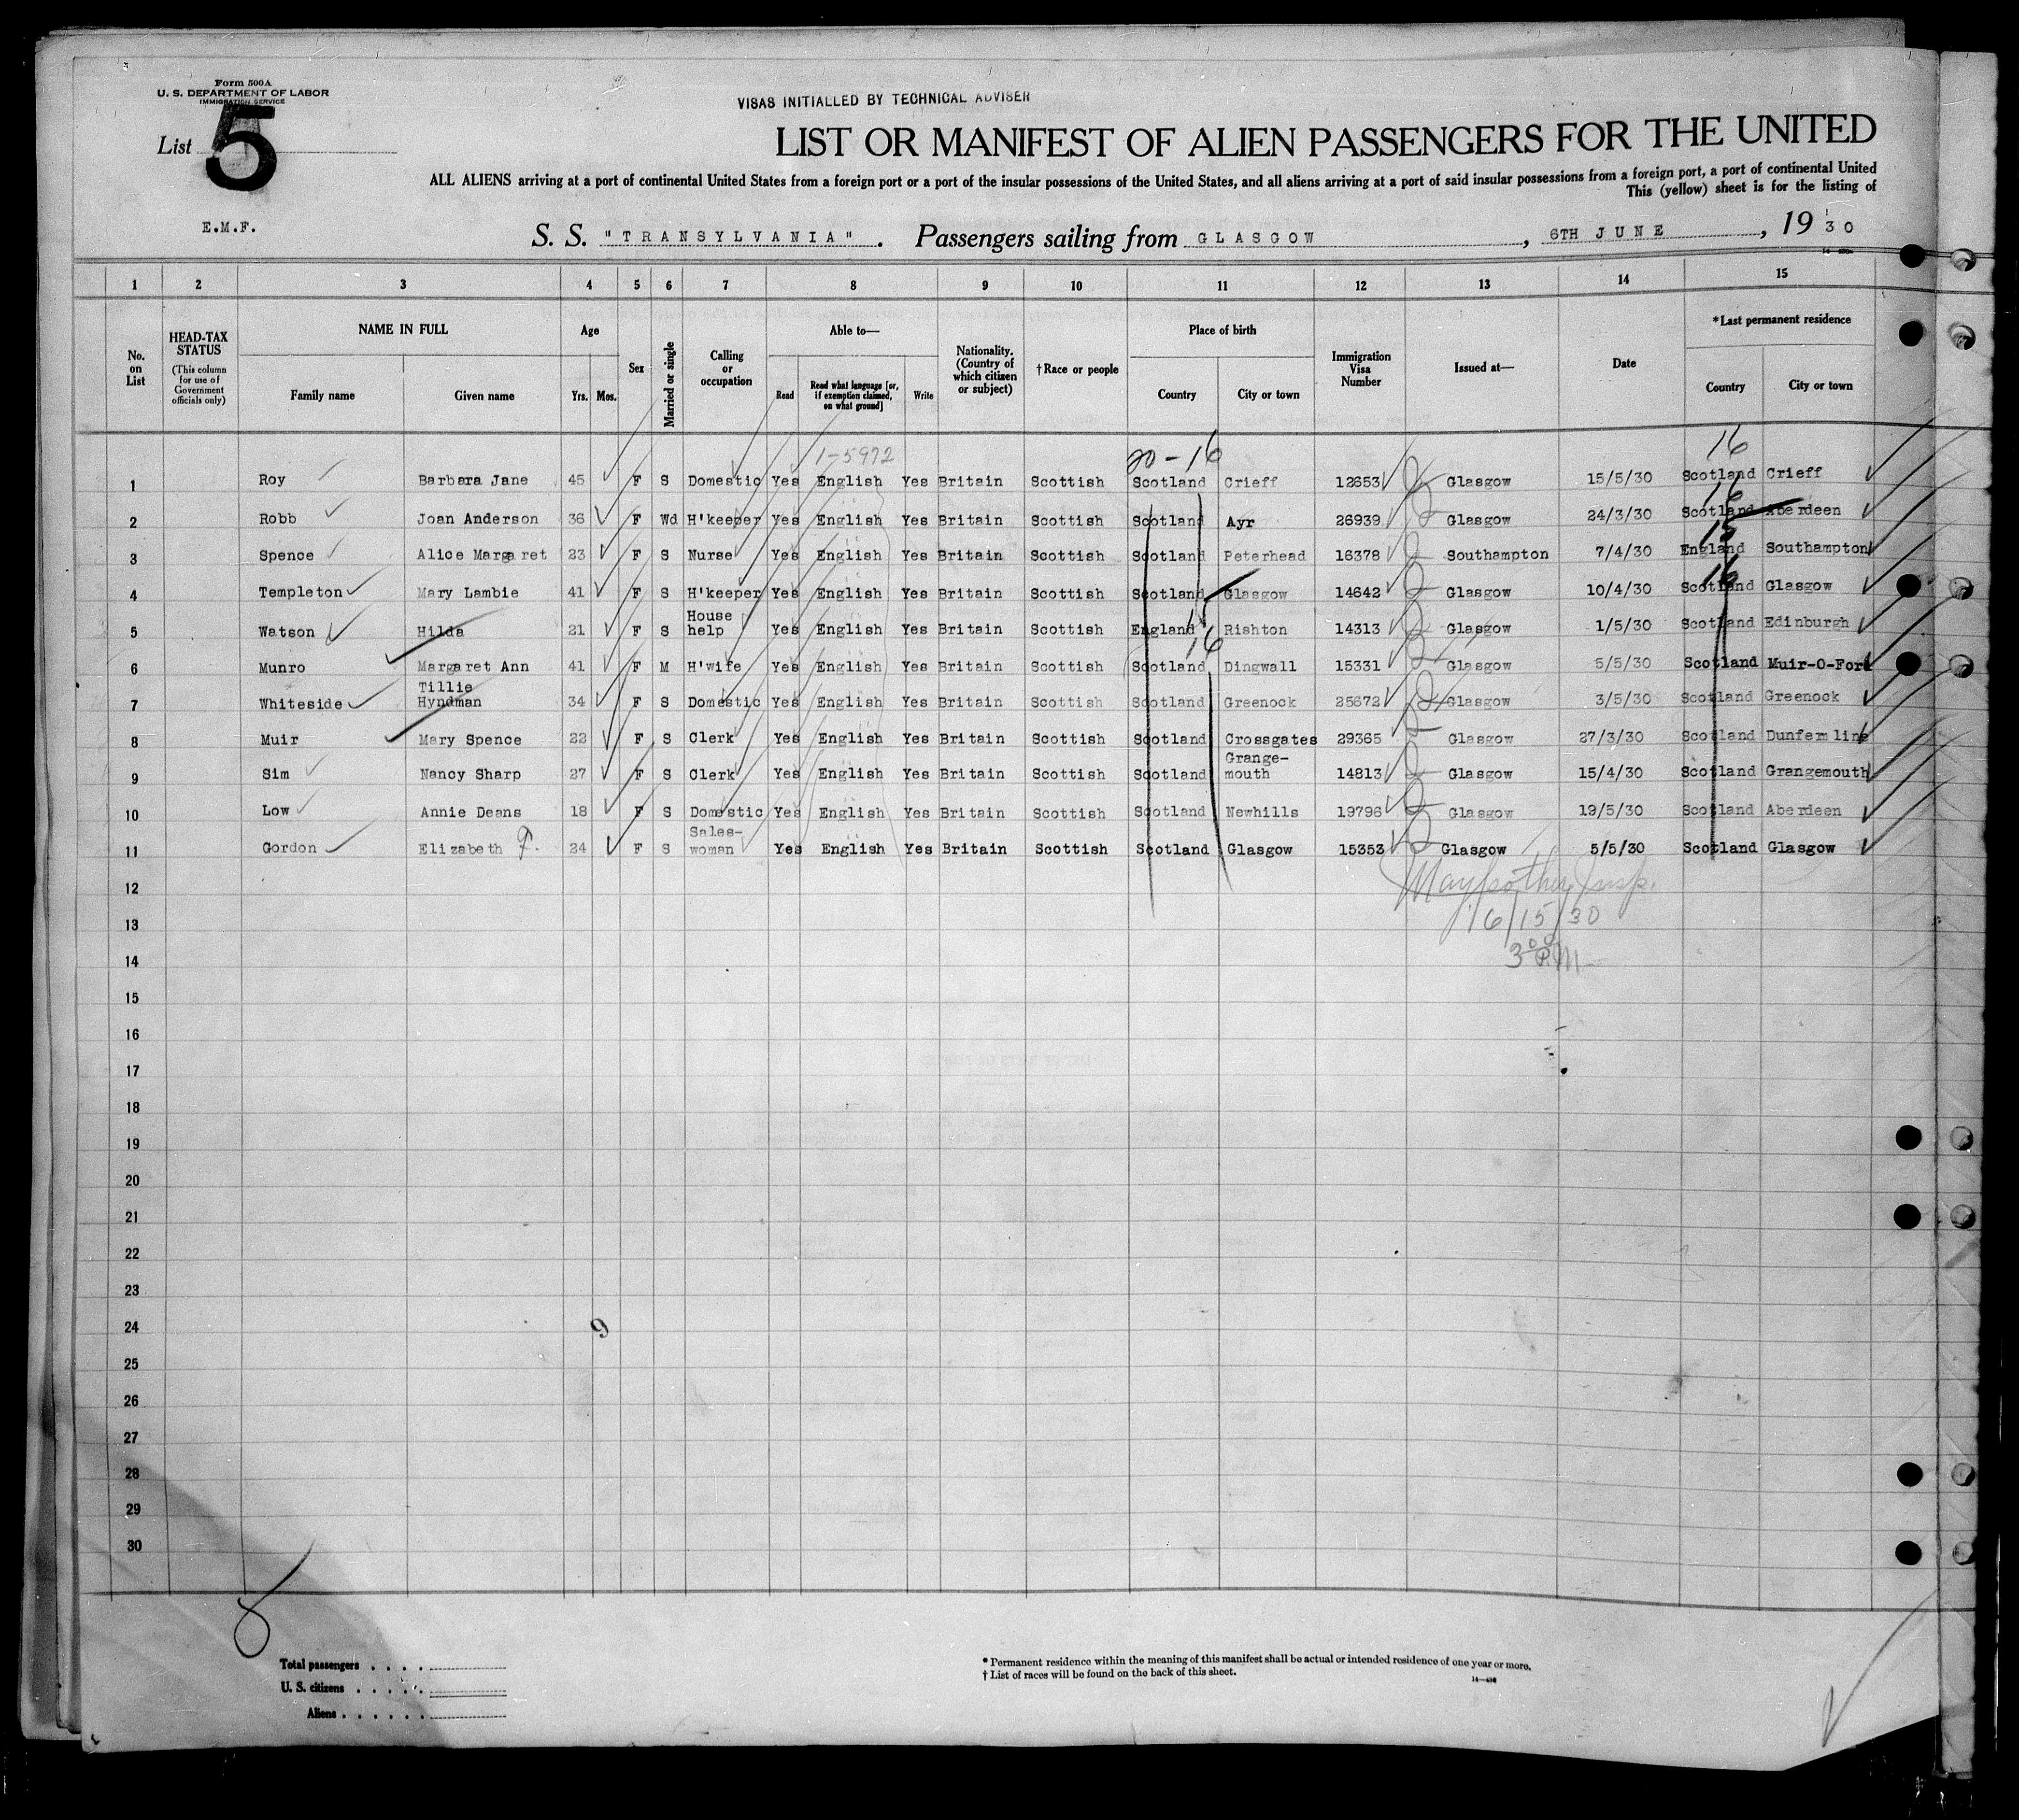 Form 500A
U. S. DEPARTMENT OF LABOR
IMMIGRATION SERVICE
VISAS INITIALLED BY TECHNICAL ADVISER
List 5
LIST OR MANIFEST OF ALIEN PASSENGERS FOR THE UNITED
ALL ALIENS arriving at a port of continental United States from a foreign port or a port of the insular possessions of the United States, and all aliens arriving at a port of said insular possessions from a foreign port, a port of continental United
This (yellow) sheet is for the listing of
E.M.F.
S. S. "TRANSYLVANIA". Passengers sailing from GLASGOW, 6TH JUNE, 1930
1 2 3 4 5 6 7 8 9 10 11 12 13 14 15
No. on List
HEAD-TAX STATUS
(This column for use of Government officials only)
NAME IN FULL
Family name Given name
Age
Yrs. Mos.
Sex
Married or single
Calling or occupation
Able to—
Read Read what language [or, if exemption claimed, on what ground] Write
Nationality. (Country of which citizen or subject)
†Race or people
Place of birth
Country City or town
Immigration Visa Number
Issued at—
Date
*Last permanent residence
Country City or town
1-5972 20-16 16
1 Roy Barbara Jane 45 F S Domestic Yes English Yes Britain Scottish Scotland Crieff 12653 Glasgow 15/5/30 Scotland Crieff
16
2 Robb Joan Anderson 36 F Wd H'keeper Yes English Yes Britain Scottish Scotland Ayr 26939 Glasgow 24/3/30 Scotland Aberdeen
15
3 Spence Alice Margaret 23 F S Nurse Yes English Yes Britain Scottish Scotland Peterhead 16378 Southampton 7/4/30 England Southampton
16
4 Templeton Mary Lambie 41 F S H'keeper Yes English Yes Britain Scottish Scotland Glasgow 14642 Glasgow 10/4/30 Scotland Glasgow
15
5 Watson Hilda 21 F S House help Yes English Yes Britain Scottish England Rishton 14313 Glasgow 1/5/30 Scotland Edinburgh
16
6 Munro Margaret Ann 41 F M H'wife Yes English Yes Britain Scottish Scotland Dingwall 15331 Glasgow 5/5/30 Scotland Muir-O-Ford
7 Whiteside Tillie Hyndman 34 F S Domestic Yes English Yes Britain Scottish Scotland Greenock 25672 Glasgow 3/5/30 Scotland Greenock
8 Muir Mary Spence 22 F S Clerk Yes English Yes Britain Scottish Scotland Crossgates 29365 Glasgow 27/3/30 Scotland Dunfermline
9 Sim Nancy Sharp 27 F S Clerk Yes English Yes Britain Scottish Scotland Grange-mouth 14813 Glasgow 15/4/30 Scotland Grangemouth
10 Low Annie Deans 18 F S Domestic Yes English Yes Britain Scottish Scotland Newhills 19796 Glasgow 19/5/30 Scotland Aberdeen
11 Gordon Elizabeth F. 24 F S Sales-woman Yes English Yes Britain Scottish Scotland Glasgow 15353 Glasgow 5/5/30 Scotland Glasgow
12 Insp.
13 6/15/30
14 3 00 P.M
15
16
17
18
19
20
21
22
23
24 9
25
26
27
28
29
30
Total passengers . . . .
U. S. citizens . . . . .
Aliens . . . . . .
* Permanent residence within the meaning of this manifest shall be actual or intended residence of one year or more.
† List of races will be found on the back of this sheet.